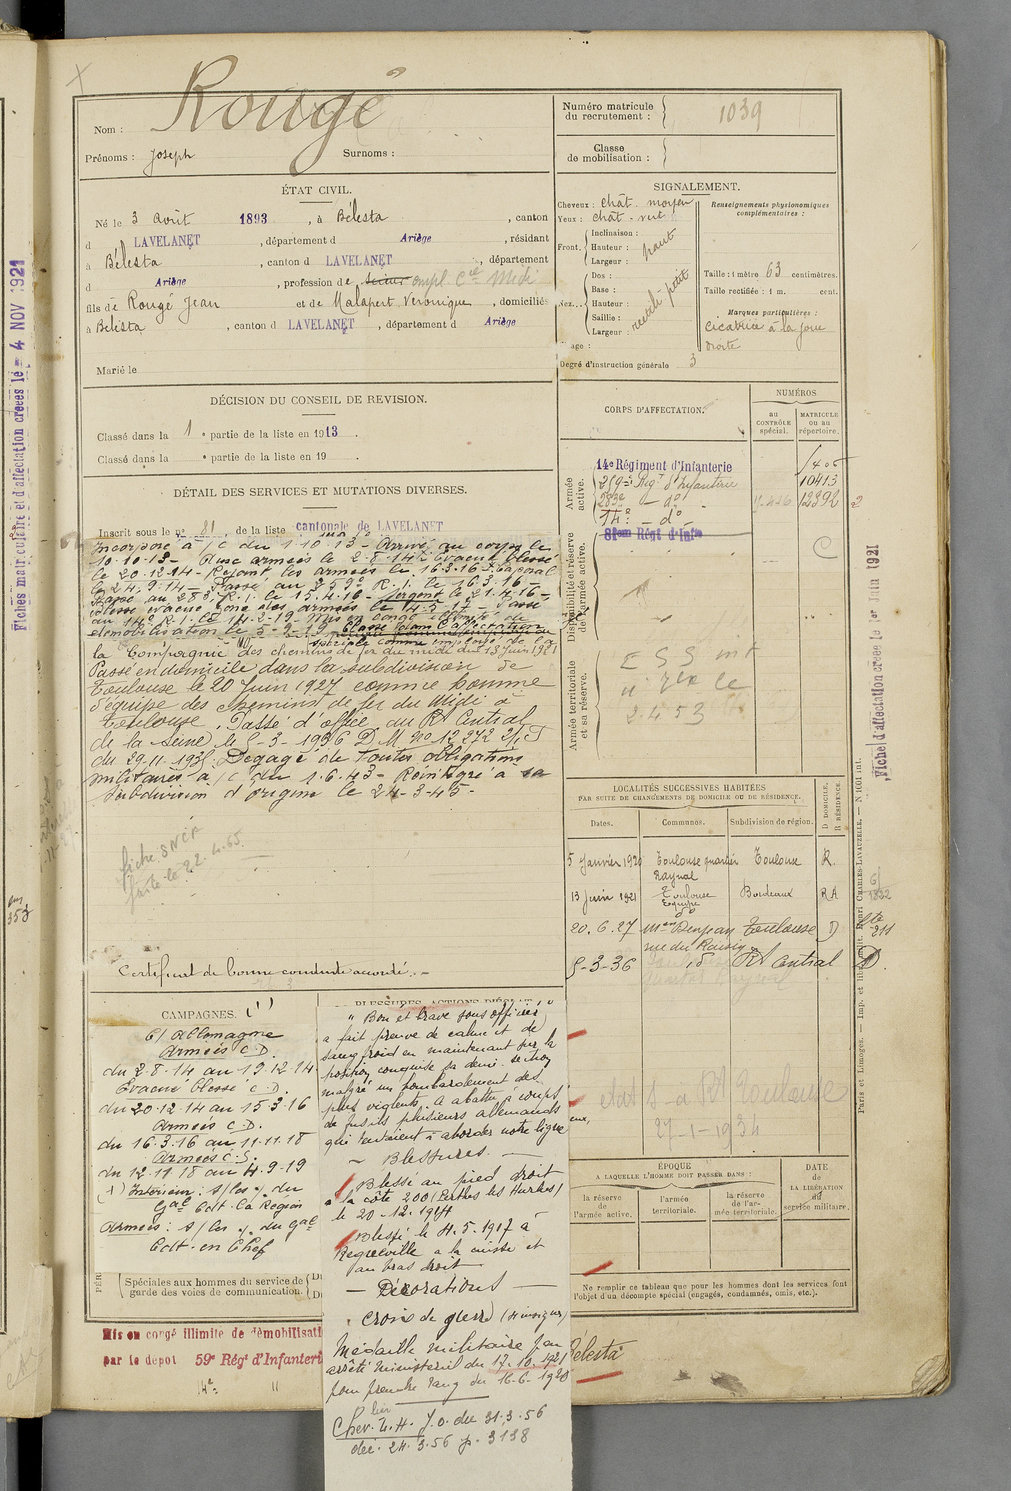 Rougé
Nom :
Prénoms : Joseph Surnoms :
Numéro matricule
du recrutement : 1039
Classe
de mobilisation :
ÉTAT CIVIL.
Né le 3 Avril 1893, à Bélesta, canton
d LAVELANET, département d Ariège, résidant
à Bélesta, canton d LAVELANET, département
d Ariège, profession de empl. Cie Midi
fils de Rougé Jean et de Malapert Véronique, domiciliés
à Bélesta, canton d LAVELANET, département d Ariège
Marié le
SIGNALEMENT.
Cheveux : chât. moyen
Yeux : chât. vert
Front. Inclinaison :
Hauteur : haut
Largeur :
Nez. Dos :
Base :
Hauteur : petit
Saillie :
Largeur :
Renseignements physionomiques
complémentaires :
Taille : 1 mètre 63 centimètres.
Taille rectifiée : 1 m. cent.
Marques particulières :
Cicatrice à la joue
droite
Degré d'instruction générale 3
DÉCISION DU CONSEIL DE REVISION.
Classé dans la 1e partie de la liste en 1913.
Classé dans la e partie de la liste en 19 .
DÉTAIL DES SERVICES ET MUTATIONS DIVERSES.
Inscrit sous le no 81 de la liste cantonale de LAVELANET
Incorporé à /c du 1-10-13 - Arrivé au corps le
10-10-13 - Aux armées le 2-8-14 - Evacué blessé
le 20-12-14 - Rejoint les armées le 16-3-16 - Caporal
le 24-9-14 - Passé au 259e R.I. le 16-3-16 -
Passé au 283 R.I. le 15-4-16 - Sergent le 21-4-16 -
Blessé évacué zone des armées le 4-5-17 - Passé
au 14e R.I. le 14-2-19 - Mis en congé illimité de
démobilisation le
Classé dans l'affectation
spéciale comme employé de la
la Compagnie des chemins de fer du midi du 13 Juin 1921
Passé en domicile dans la subdivision de
Toulouse le 20 Juin 1927 comme homme
d'équipe des chemins de fer du Midi à
Toulouse. Passé d'office au Rt Central
de la Seine le 5-3-1936 D.M. No 12972
du 29-11-1935. Dégagé de toutes obligations
militaires à /c du 1-6-43 - Réintégré à sa
subdivision d'origine le 24-3-45 -
fiche SNCF
faite le 22.4.65
Certificat de bonne conduite accordé. -
CORPS D'AFFECTATION.
NUMÉROS
au
CONTRÔLE
spécial.
MATRICULE
ou au
répertoire.
Armée
active.
14e Régiment d'Infanterie 1405
259e Régt d'Infanterie 10413
283e - do - 12392
14e - do -
Disponibilité et réserve
de l'armée active.
Armée territoriale
et sa réserve.
LOCALITÉS SUCCESSIVES HABITÉES
PAR SUITE DE CHANGEMENTS DE DOMICILE OU DE RÉSIDENCE.
Dates. Communes. Subdivision de région. D DOMICILE. R RÉSIDENCE.
5 Janvier 1920 Toulouse quartier Toulouse R.
Raynal
13 Juin 1921 Toulouse Bordeaux RA
20.6.27 Toulouse D
rue du Raisin
5-3-36 Rt Central D.
27-1-1934
CAMPAGNES.
C/ Allemagne
Armées C.D.
du 2-8-14 au 19-12-14
Evacué blessé C.D.
du 20-12-14 au 15-3-16
Armées C.D.
du 16-3-16 au 11-11-18
Armées C.S.
du 12-11-18 au 4-9-19
Intérieur : s/les o/. du
Gal Cdt. la Région
Armées : s/les o/. du Gal
Cdt. en Chef
" Bon et brave sous officier
a fait preuve de calme et de
sang froid en maintenant sur la
position conquise sa demi-section
malgré un bombardement des
plus violents. A abattu à coups
de fusils plusieurs allemands
qui tentaient d'aborder notre ligne "
- Blessures. -
Blessé au pied droit
à la côte 200 (Perthes les Hurlus)
le 20-12-1914
Blessé le 4.5.1917 à
à la cuisse et
au bras droit
- Décorations -
Croix de guerre
Médaille militaire par
arrêté ministériel du 17.10.1921
pour prendre rang du 16-6-1920
Cher. L.H. J.O. du 31.3.56
déc. 24.3.56 p. 3138
ÉPOQUE
A LAQUELLE L'HOMME DOIT PASSER DANS :
la réserve
de
l'armée active.
l'armée
territoriale.
la réserve
de l'ar-
mée territoriale.
DATE
de
LA LIBÉRATION
du
service militaire.
Spéciales aux hommes du service de
garde des voies de communication.
Ne remplir ce tableau que pour les hommes dont les services font
l'objet d'un décompte spécial (engagés, condamnés, omis, etc.).
Mis en congé illimité de démobilisati
par le dépôt 59e Régt d'Infanteri
14e
Bélesta
Fiches matriculaire et d'affectation créées le - 4 NOV 1921
Fiche d'affectation créée le 1er Juin 1921
Paris et Limoges. — Imp. et lib. milit. Henri CHARLES-LAVAUZELLE. — N. 1001 int.